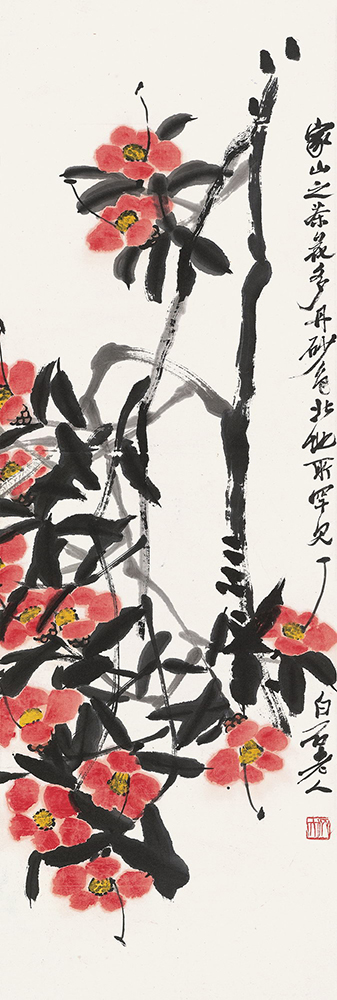 家山之茶花多丹砂色北地所罕见
白石老人